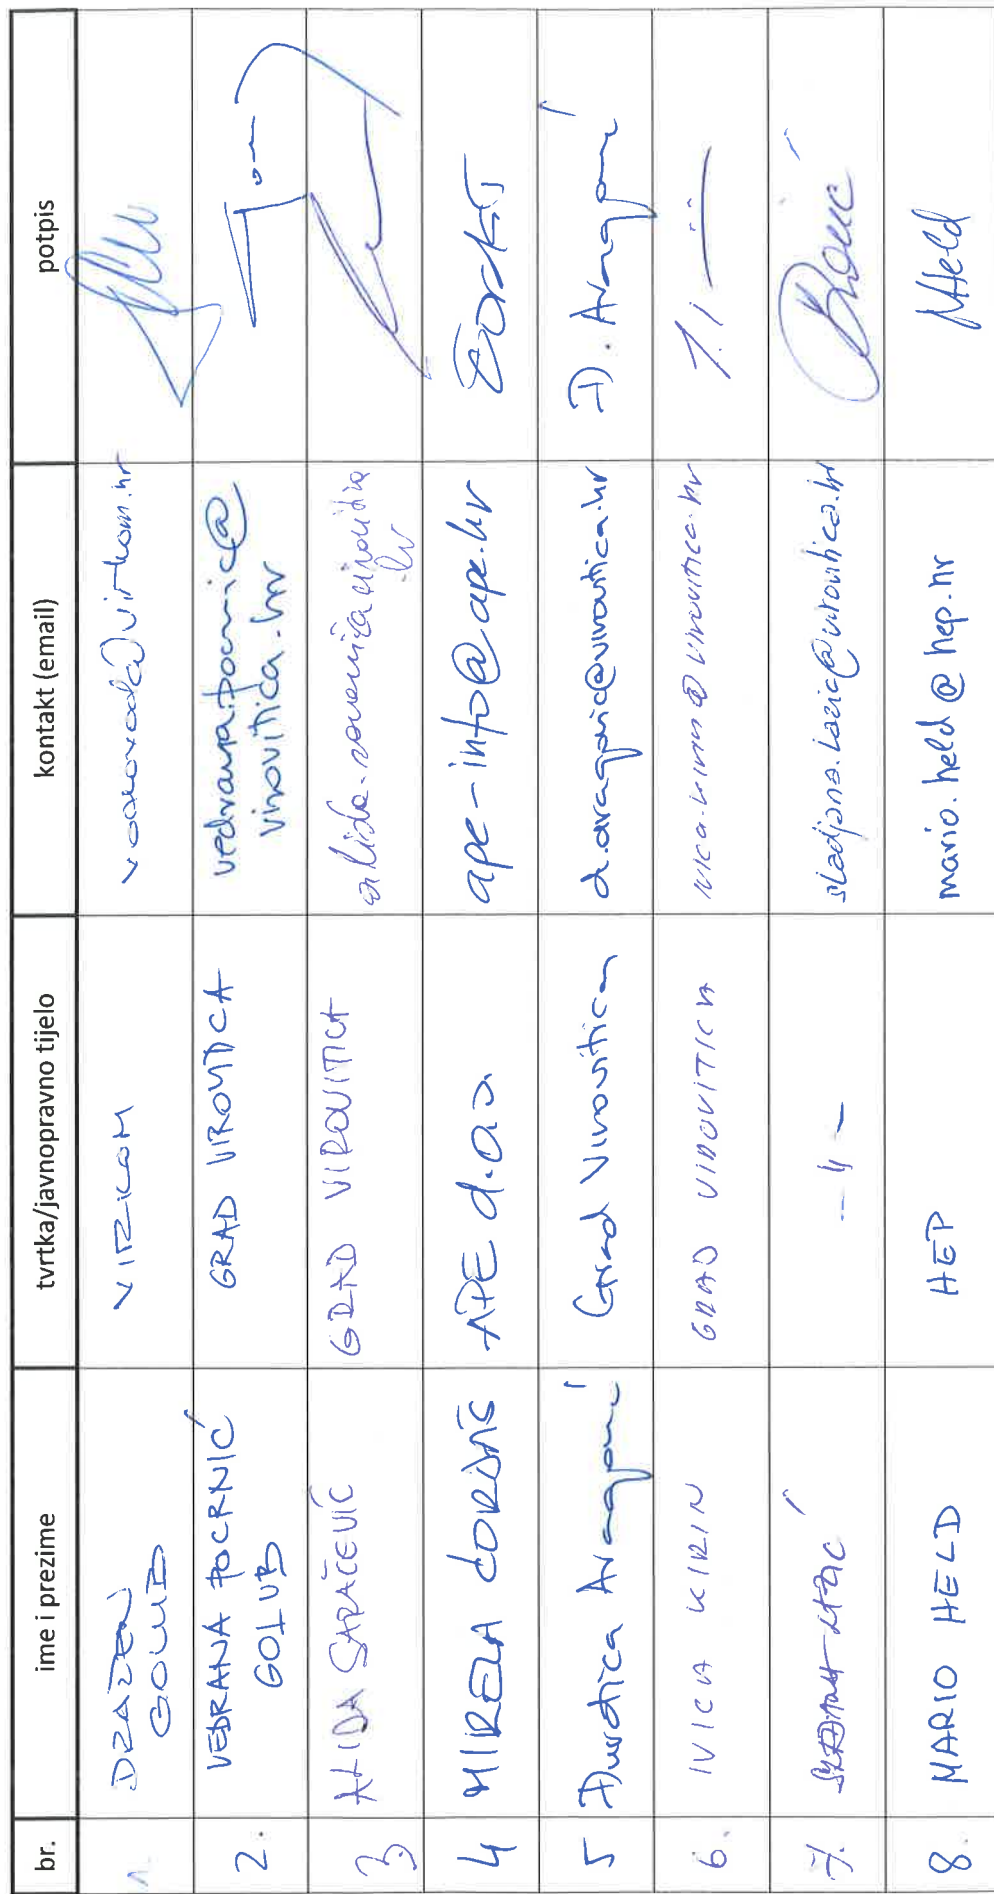 br. ime i prezime tvrtka/javnopravno tijelo kontakt (email) potpis
1. DRAŽEN GOLUB VIRKOM
2. VEDRANA POCRNIĆ GOLUB GRAD VIROVITICA vedrana.pocrnic@virovitica.hr
3. ALIDA SARAČEVIĆ GRAD VIROVITICA
4 MIRELA ĐORĐIĆ APE d.o.o. ape-info@ape.hr
5 Đurđica Aragović Grad Virovitica d.aragovic@virovitica.hr Đ. Aragović
6. IVICA KIRIN GRAD VIROVITICA ivica.kirin@virovitica.hr
7. --"-- sladjana.lazic@virovitica.hr
8. MARIO HELD HEP mario.held@hep.hr MHeld